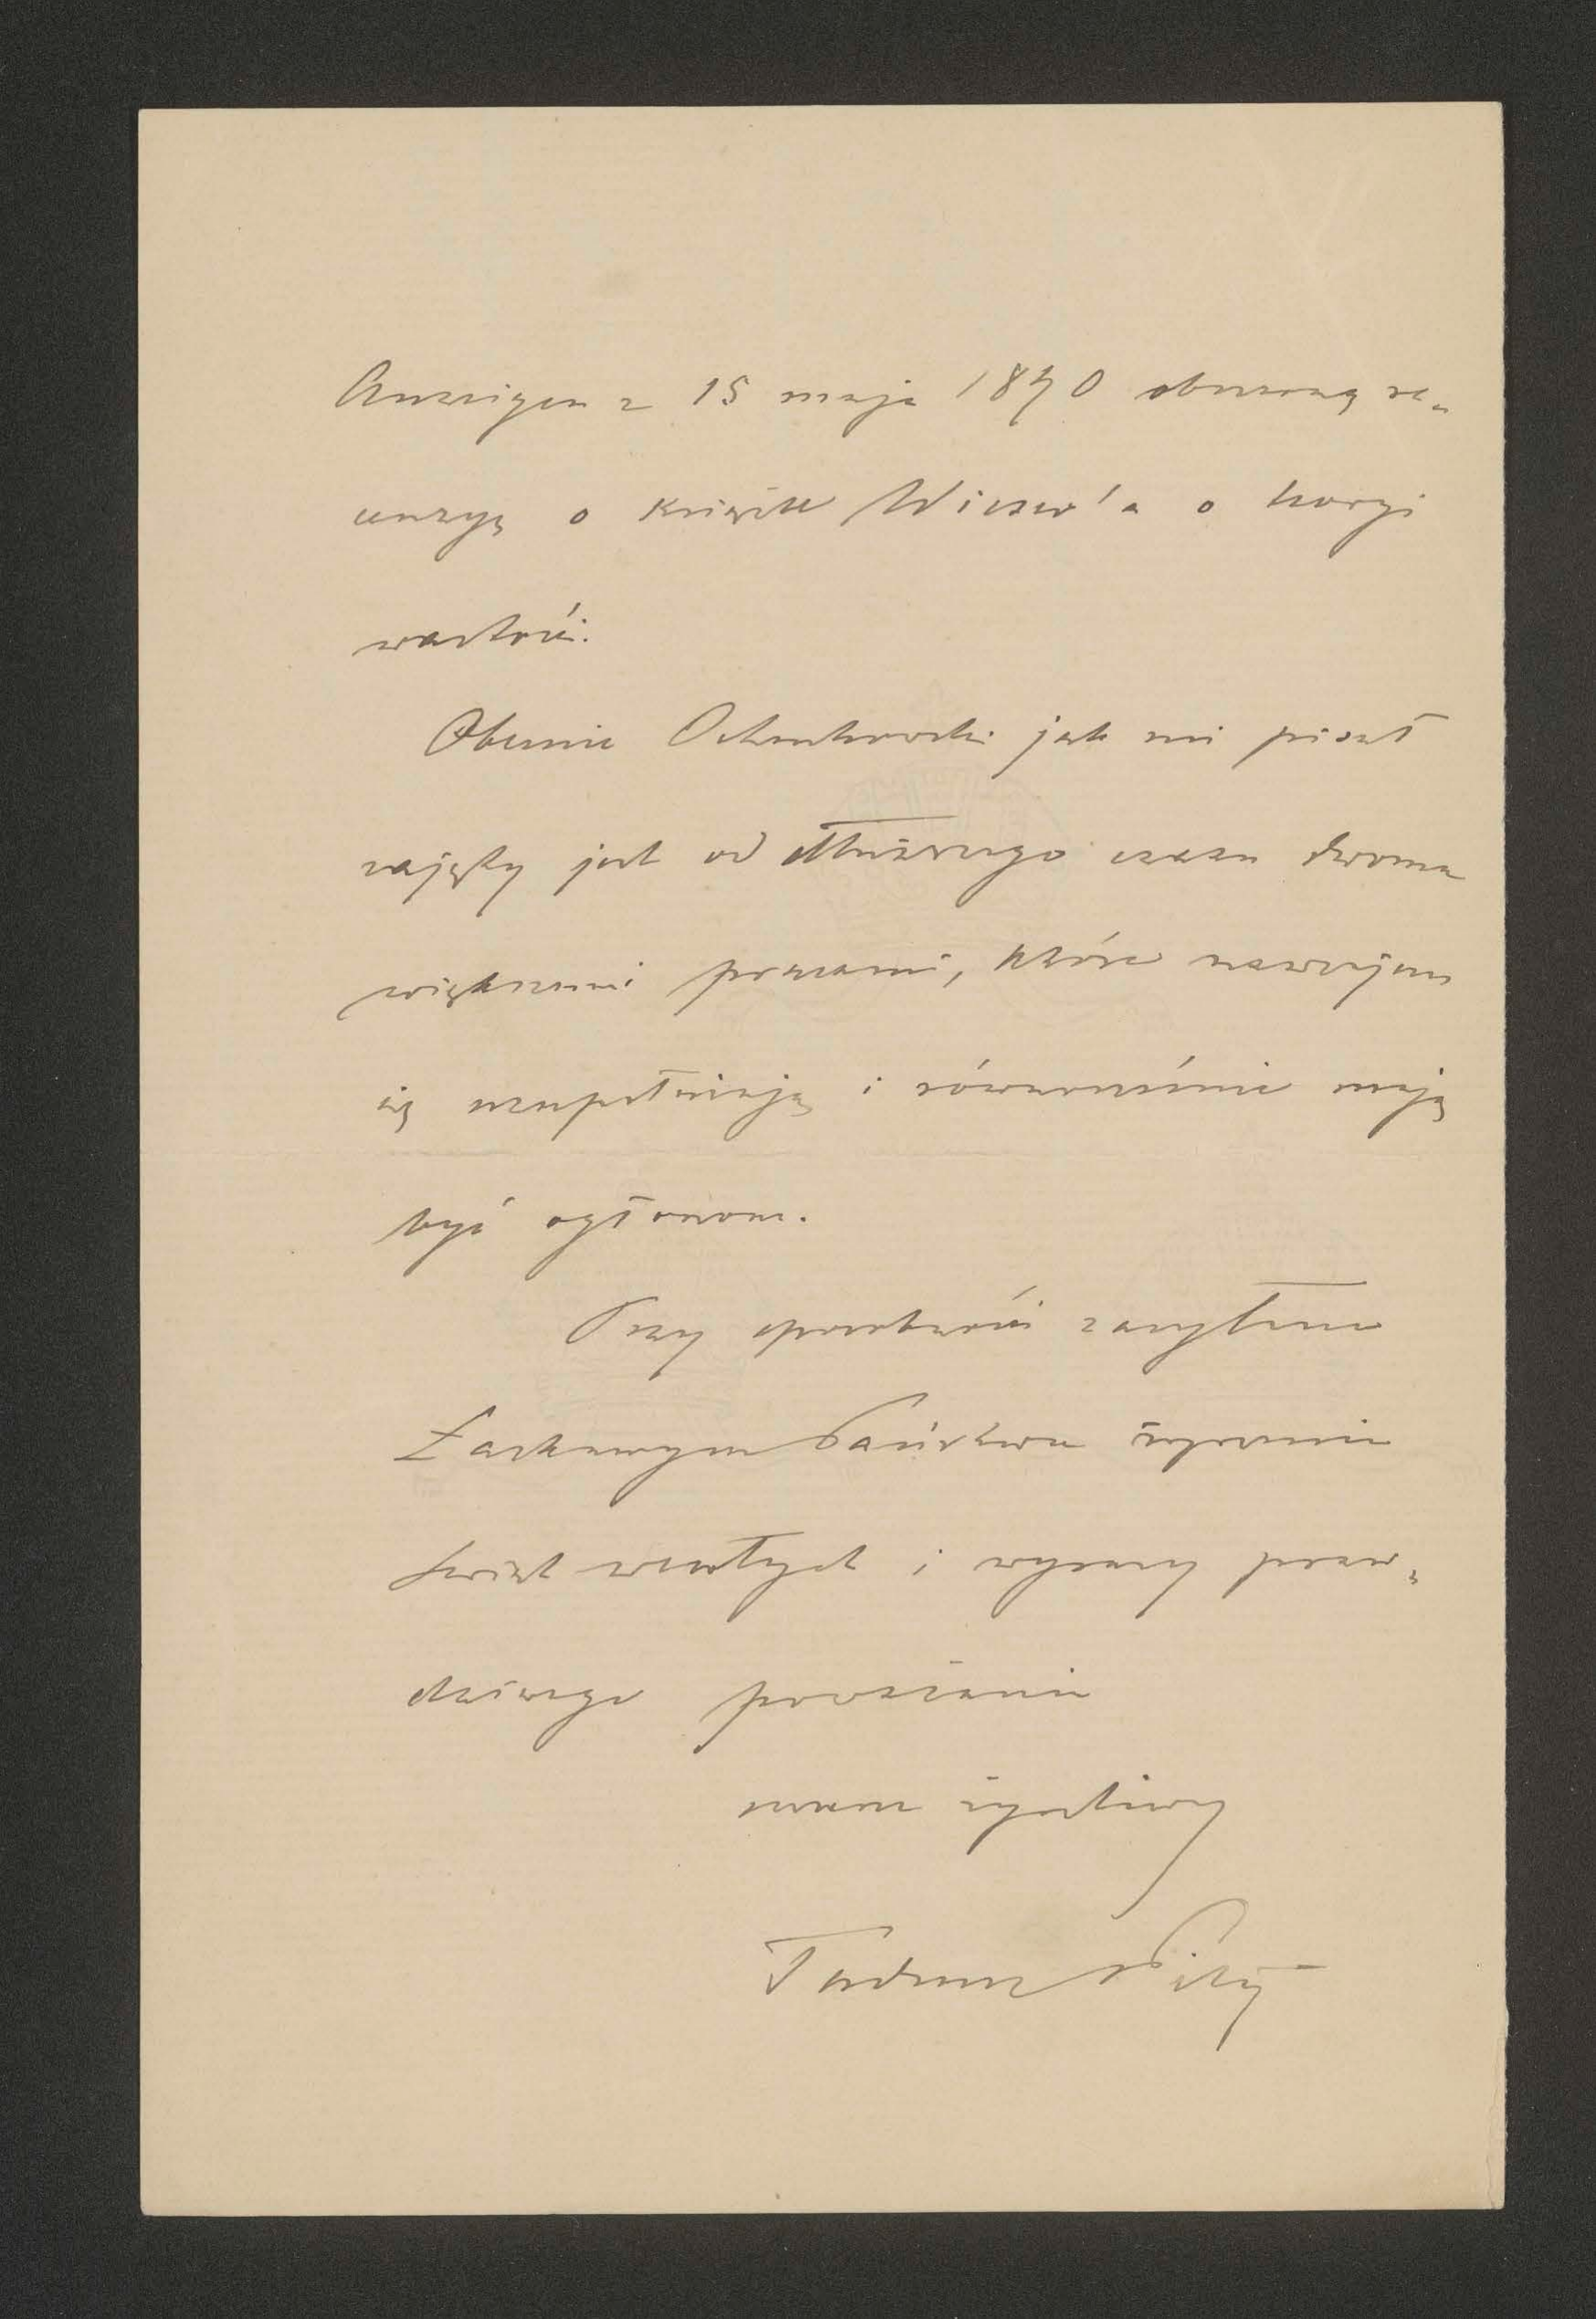 Anzeigen z 15 maja 1890 obszerną re-
cenzyę o książce Wieser'a o teoryi
wartości.
Obecnie Ochenkowski jak mi pisał
zajęty jest od dłuższego czasu dwoma
większemi pracami, które nawzajem
się uzupełniają i równocześnie mają
być ogłoszone.
Przy sposobności zasyłam
Łaskawym Państwu życzenia
świąt wesołych i wyrazy praw-
dziwego poważania
szczerze życzliwy
Tadeusz Pilat